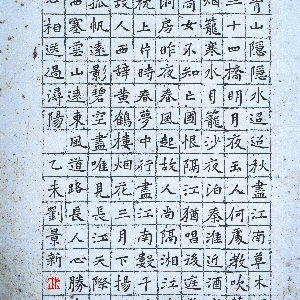 青山隱隱水迢迢秋盡江南草木
二十四橋明月夜玉人何處教吹
烟籠寒水月籠沙夜泊秦淮近酒
女不知亡國恨隔江猶唱後庭
房昨夜春風起故人尚隔湘江
枕上片時春夢中行盡江南數千
故人西辭黃鶴樓烟花三月下揚
孤帆遠影碧空盡唯見長江天際
西塞雲山遠東風道路長人心勝
相送過潯陽 乙未劉景新